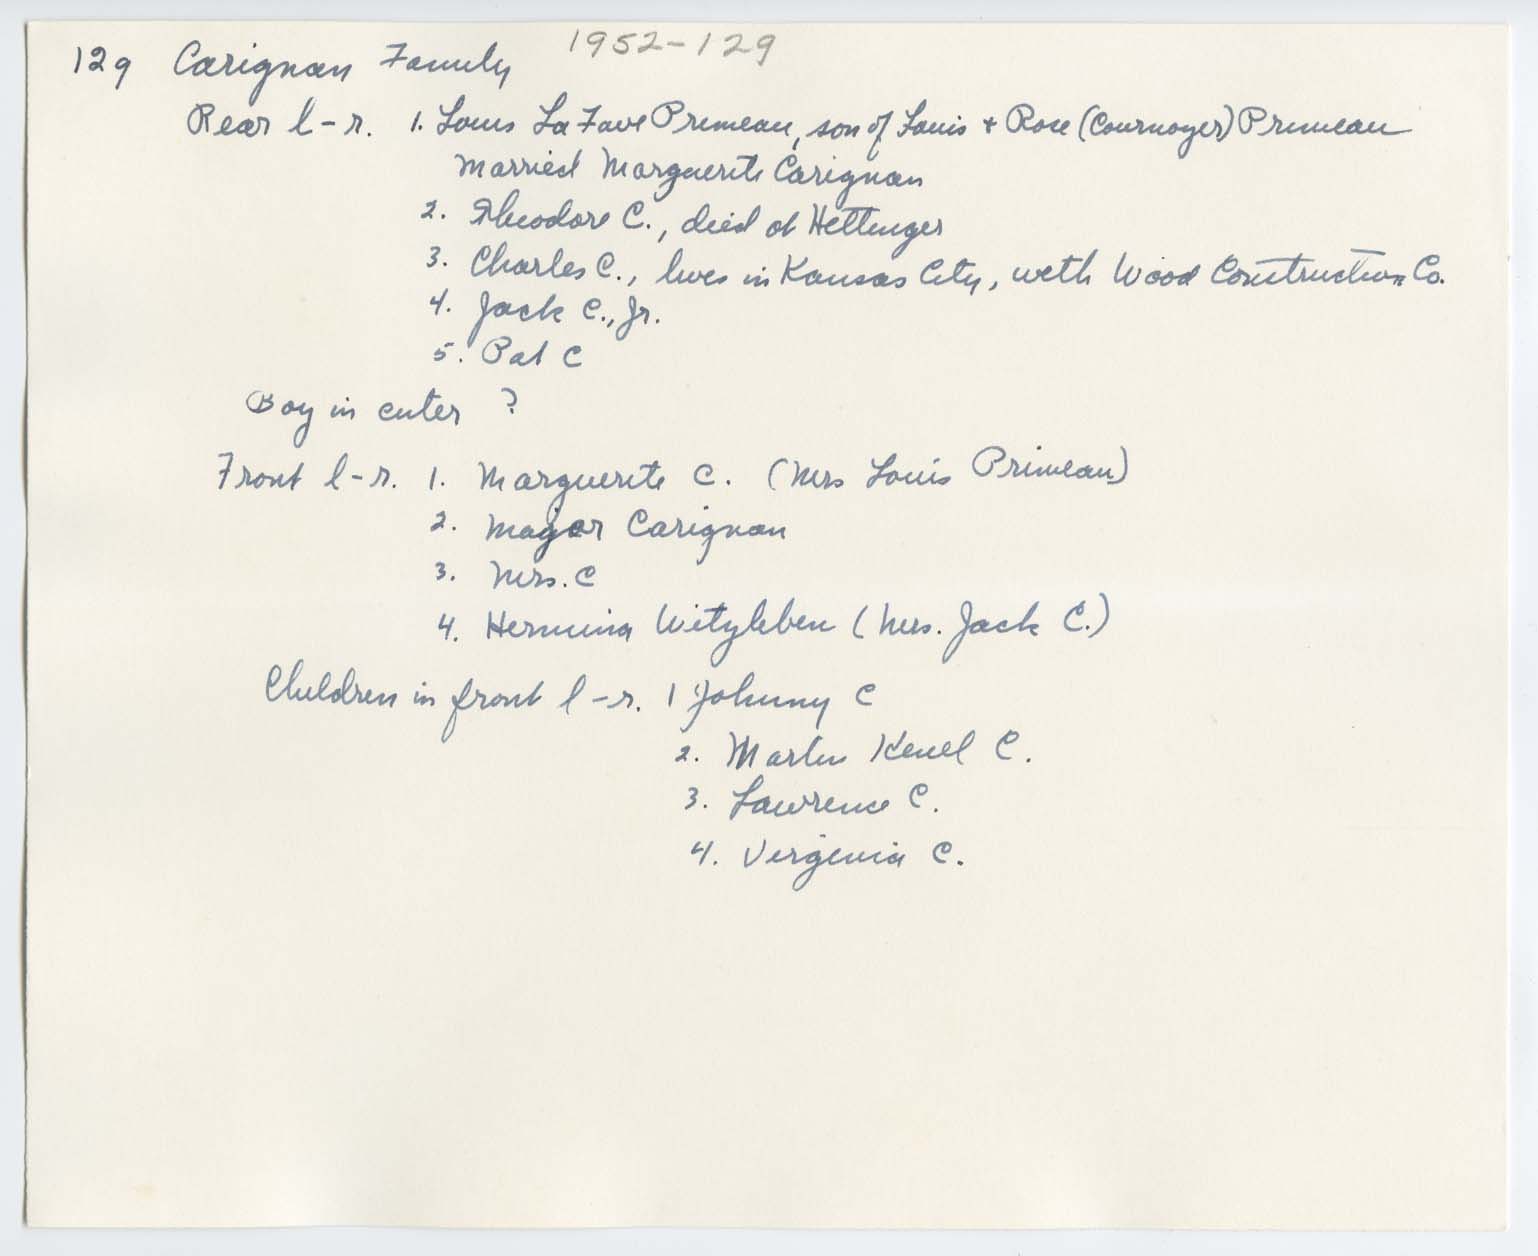 1952-129
129 Carignan Family
Rear l-r. 1. Louis La Fave Primeau, son of Louis + Rose (Cournoyer) Primeau
married Marguerite Carignan
2. Theodore C., died at Hettinger
3. Charles C., lives in Kansas City, with Wood Construction Co.
4. Jack C., Jr.
5. Pat C
Boy in center ?
Front l-r. 1. Marguerite C. (Mrs Louis Primeau)
2. Major Carignan
3. Mrs. C
4. Hermina Witzleben (Mrs. Jack C.)
Children in front l-r. 1 Johnny C
2. Kenel C.
3. Lawrence C.
4. Virginia C.